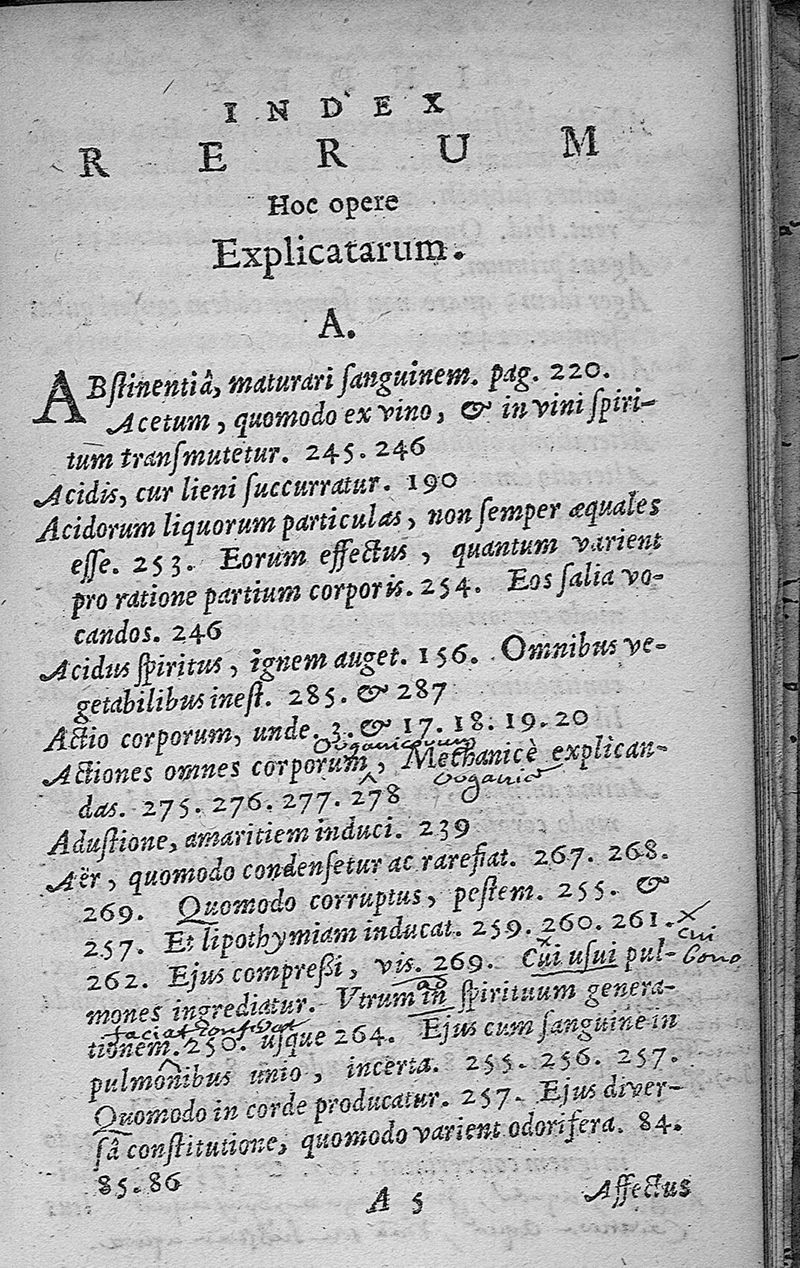 INDEX
RERUM
Hoc opere
Explicatarum.
A.
ABſtinentiâ, maturari ſanguinem. pag. 220.
Acetum, quomodo ex vino, & in vini ſpiri-
tum tranſmutetur. 245. 246
Acidis, cur lieni ſuccurratur. 190
Acidorum liquorum particulas, non ſemper æquales
eſſe. 253. Eorum effectus, quantum varient
pro ratione partium corporis. 254. Eos ſalia vo-
candos. 246
Acidus ſpiritus, ignem auget. 156. Omnibus ve-
getabilibus ineſt. 285. & 287
Actio corporum, unde. 3. & 17. 18. 19. 20
Organicorum
Actiones omnes corporum, Mechanicè explican-
das. 275. 276. 277. 278
Aduſtione, amaritiem induci. 239
Aër, quomodo condenſetur ac rarefiat. 267. 268.
269. Quomodo corruptus, peſtem. 255. &
257. Et lipothymiam inducat. 259. 260. 261.
262. Ejus compreßi, vis. 269. Cui uſui pul-
x cui bono
mones ingrediatur. Vtrum in ſpirituum genera-
ad
tionem. 250. uſque 264. Ejus cum ſanguine in
pulmonibus unio, incerta. 255. 256. 257.
Quomodo in corde producatur. 257. Ejus diver-
ſâ conſtitutione, quomodo varient odorifera. 84.
85. 86
A 5
Affectus